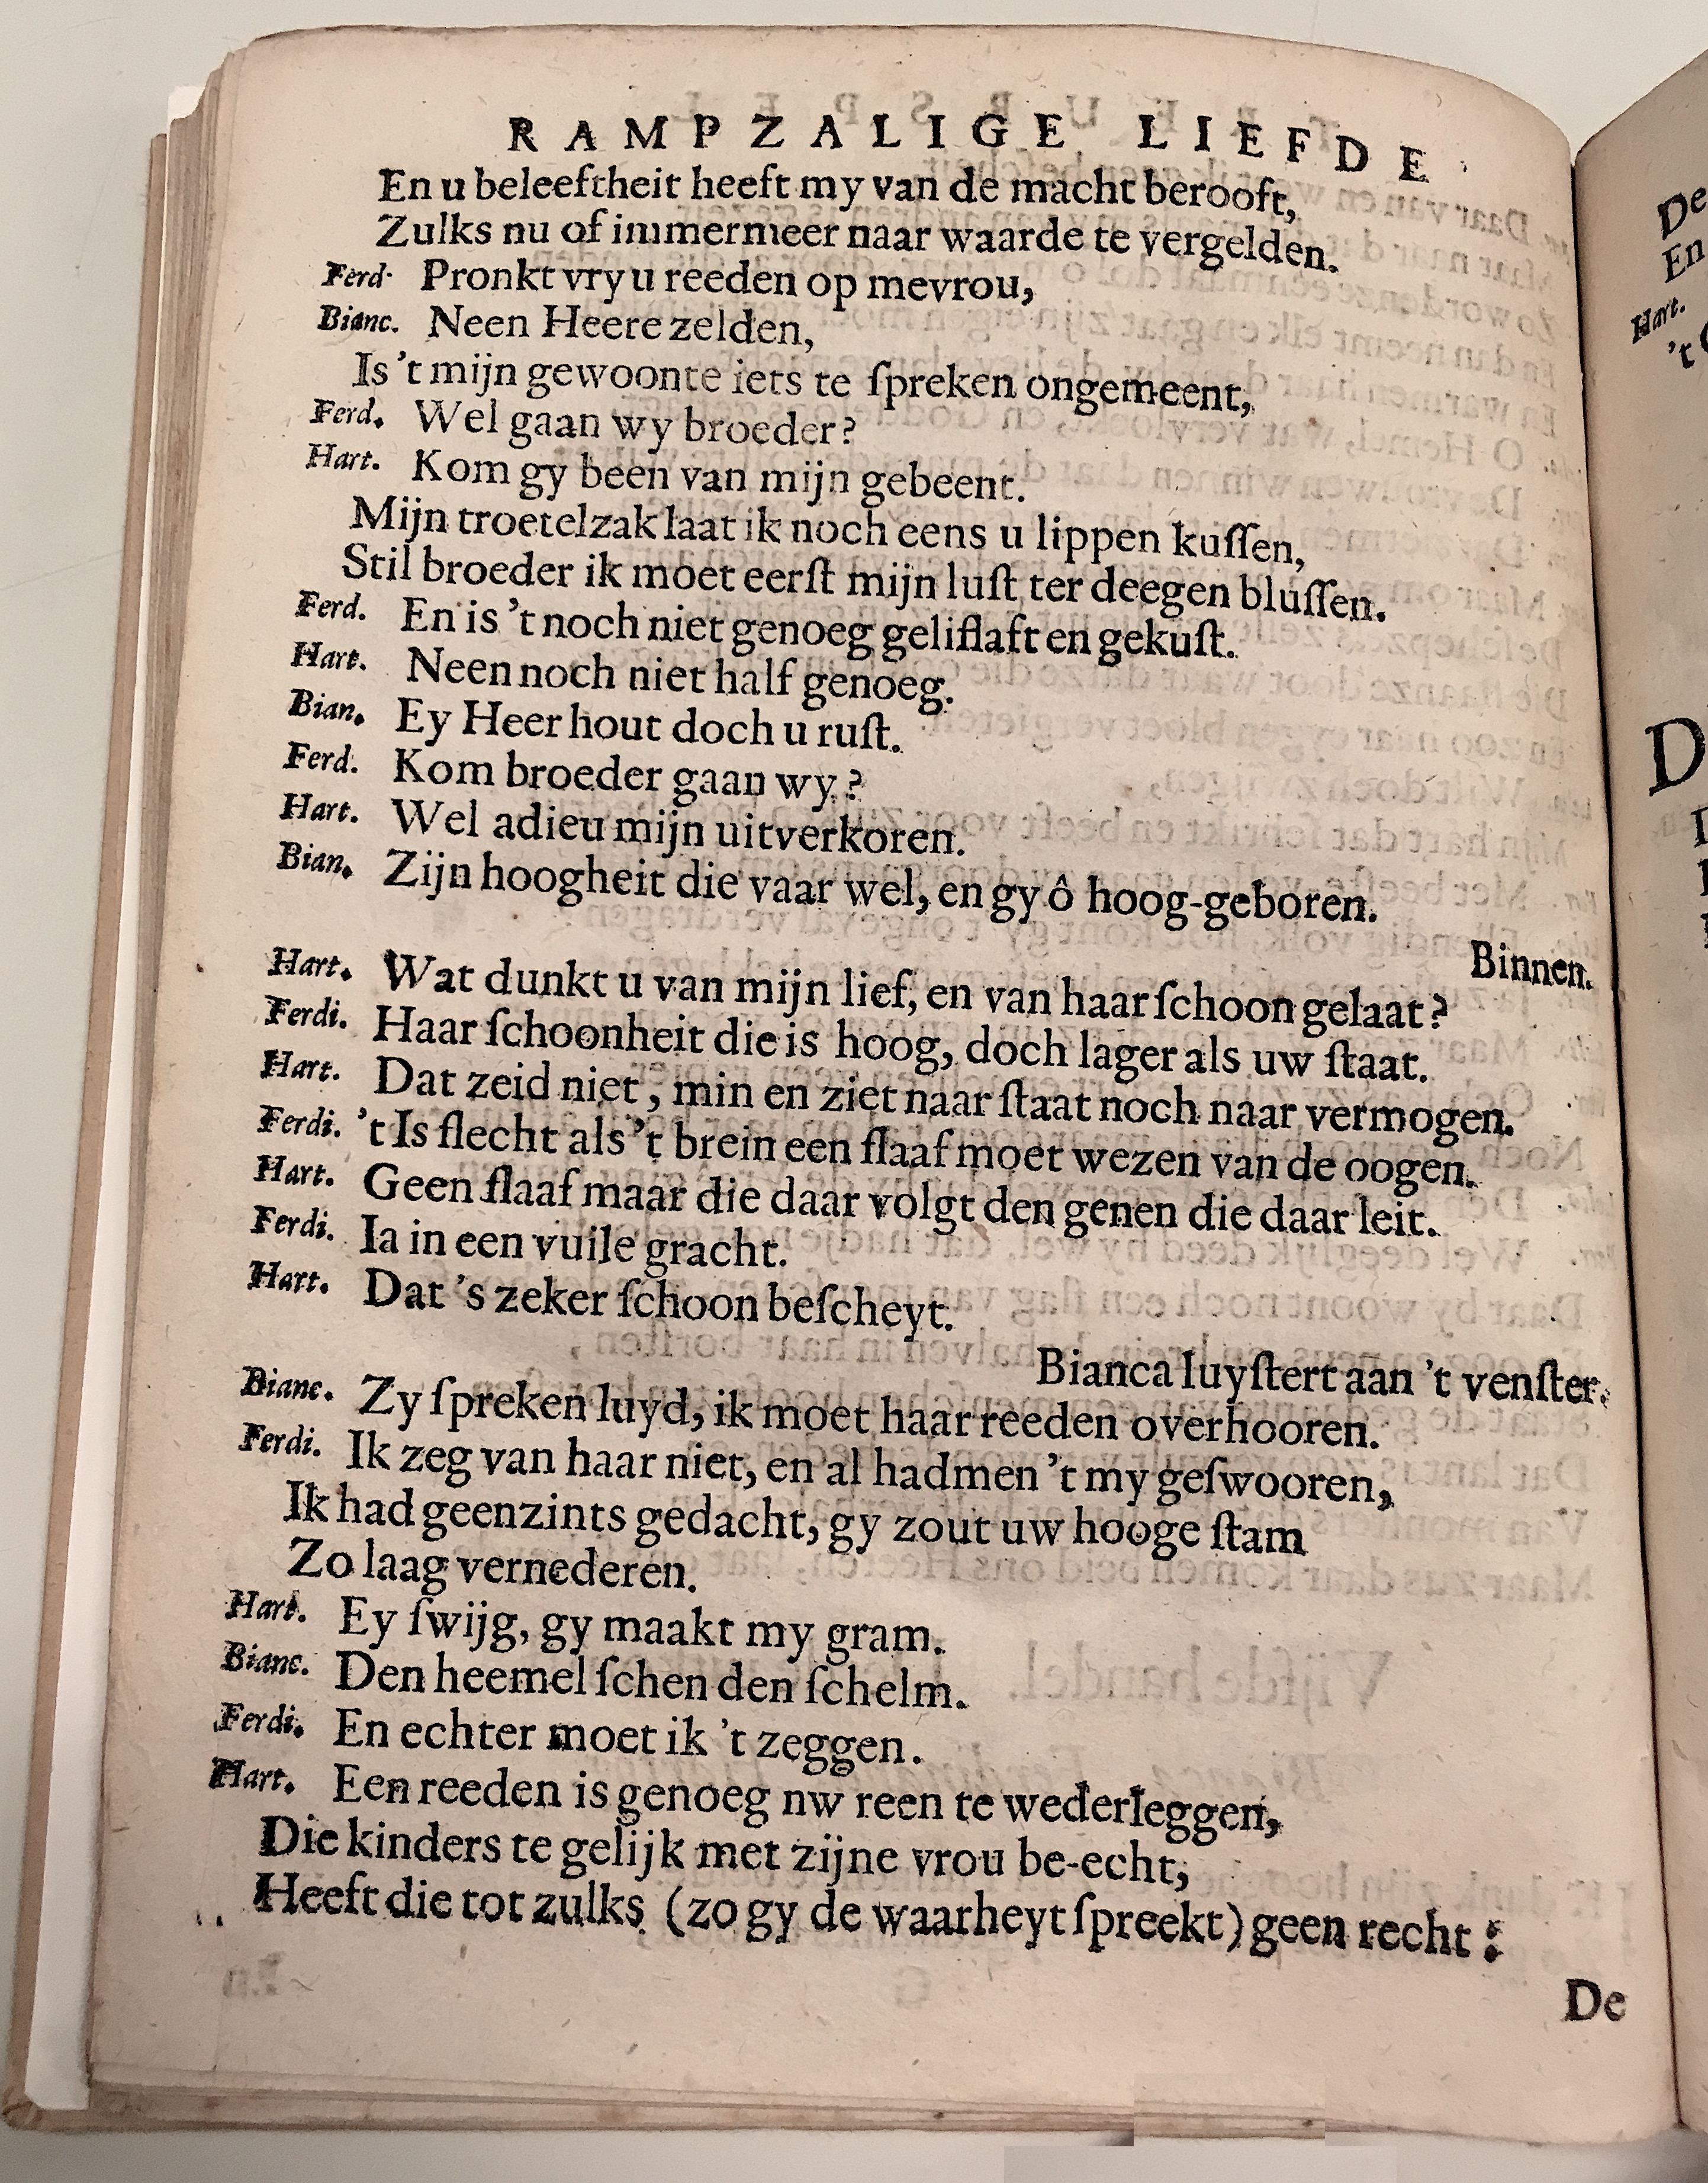 RAMPZALIGE LIEFDE
En u beleeftheit heeft my van de macht berooft,
Zulks nu of immermeer naar waarde te vergelden.
Ferd. Pronkt vry u reeden op mevrou,
Bianc. Neen Heere zelden,
Is 't mijn gewoonte iets te ſpreken ongemeent,
Ferd. Wel gaan wy broeder?
Hart. Kom gy been van mijn gebeent.
Mijn troetelzak laat ik noch eens u lippen kuſſen,
Stil broeder ik moet eerſt mijn luſt ter deegen bluſſen.
Ferd. En is 't noch niet genoeg geliflaft en gekuſt.
Hart. Neen noch niet half genoeg.
Bian. Ey Heer hout doch u ruſt.
Ferd. Kom broeder gaan wy?
Hart. Wel adieu mijn uitverkoren.
Bian. Zijn hoogheit die vaar wel, en gy ô hoog-geboren.
Binnen.
Hart. Wat dunkt u van mijn lief, en van haar ſchoon gelaat?
Ferdi. Haar ſchoonheit die is hoog, doch lager als uw ſtaat.
Hart. Dat zeid niet, min en ziet naar ſtaat noch naar vermogen.
Ferdi. 't Is ſlecht als 't brein een ſlaaf moet wezen van de oogen.
Hart. Geen ſlaaf maar die daar volgt den genen die daar leit.
Ferdi. Ia in een vuile gracht.
Hart. Dat 's zeker ſchoon beſcheyt.
Bianca luyſtert aan 't venſter.
Bianc. Zy ſpreken luyd, ik moet haar reeden overhooren.
Ferdi. Ik zeg van haar niet, en al hadmen 't my geſwooren,
Ik had geenzints gedacht, gy zout uw hooge ſtam
Zo laag vernederen.
Hart. Ey ſwijg, gy maakt my gram.
Bianc. Den heemel ſchen den ſchelm.
Ferdi. En echter moet ik 't zeggen.
Hart. Een reeden is genoeg nw reen te wederleggen,
Die kinders te gelijk met zijne vrou be-echt,
Heeft die tot zulks (zo gy de waarheyt ſpreekt) geen recht:
De
De
En
Hart.
't
D